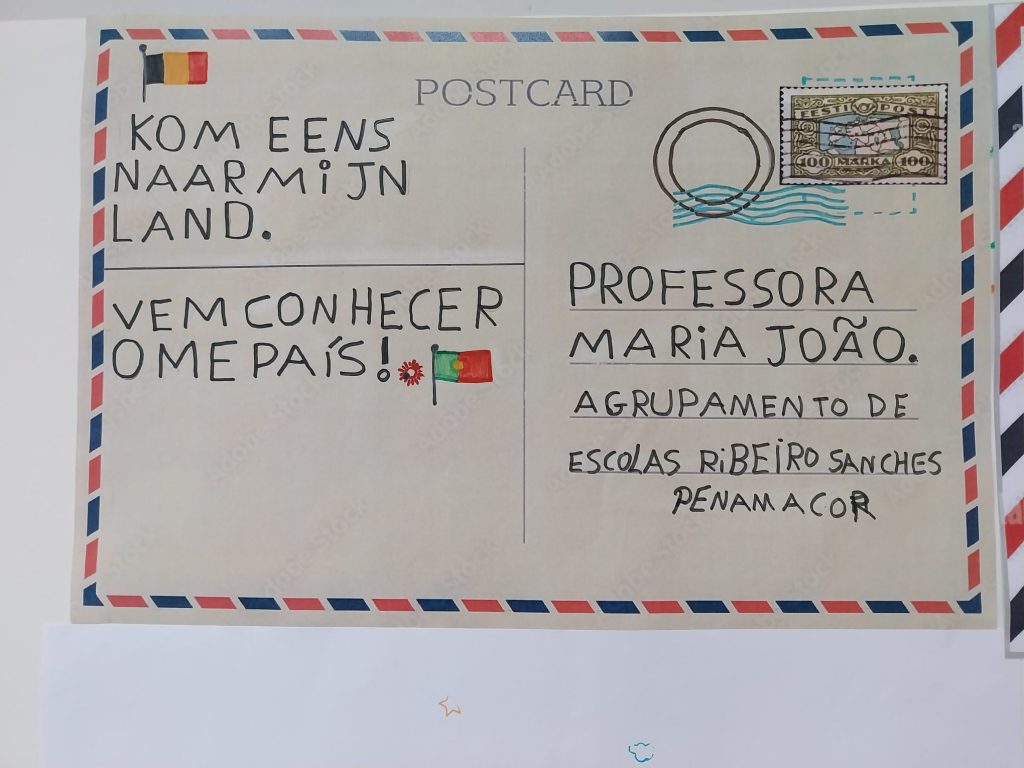 POSTCARD
KOM EENS
NAAR MIJN
LAND.
VEM CONHECER
O ME PAÍS!
EESTI POST
100 MARKA 100
PROFESSORA
MARIA JOÃO.
AGRUPAMENTO DE
ESCOLAS RIBEIRO SANCHES
PENAMACOR